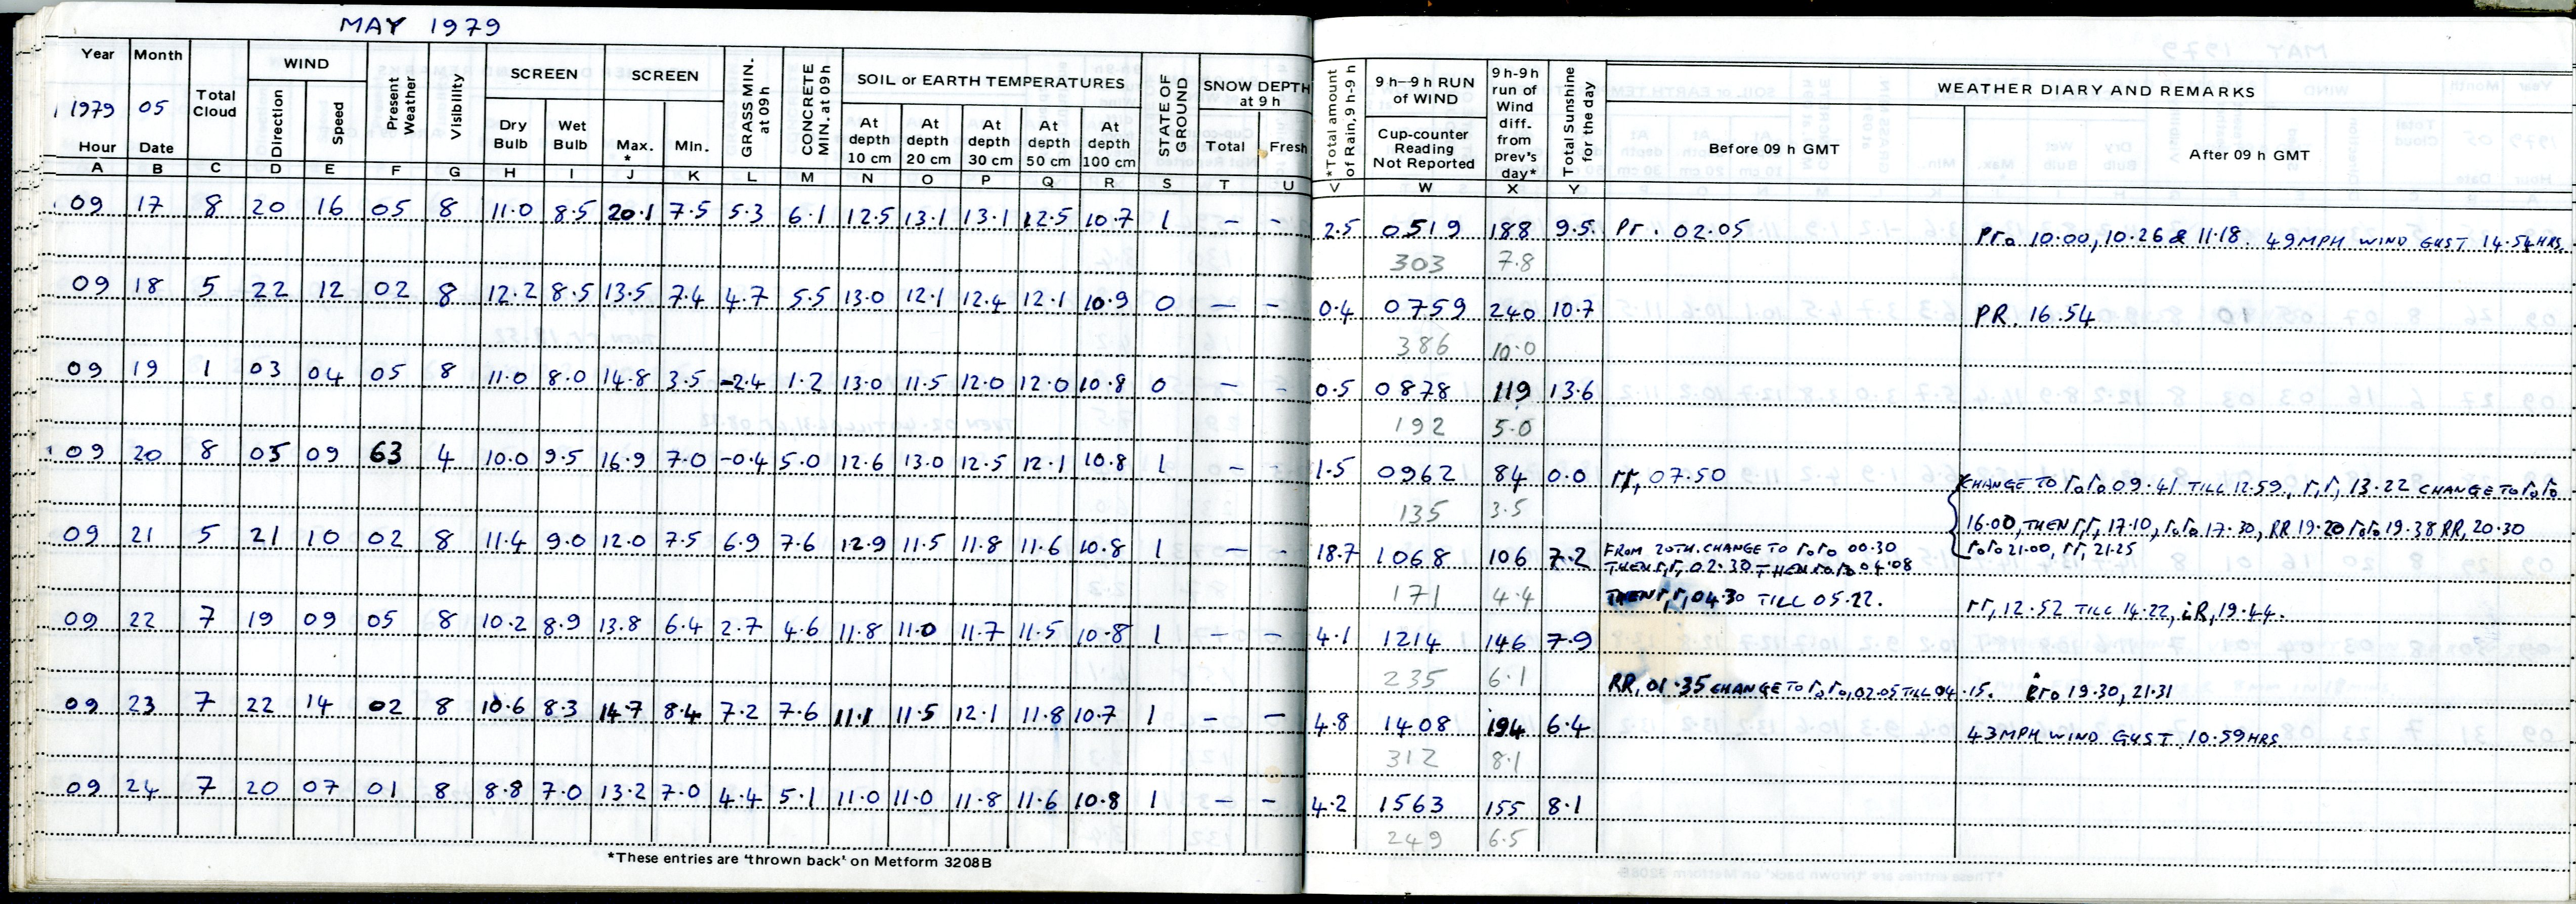 MAY 1979
Year Month Total Cloud WIND Present Weather Visibility SCREEN SCREEN GRASS MIN. at 09h CONCRETE MIN. at 09h SOIL or EARTH TEMPERATURES STATE OF GROUND SNOW DEPTH at 9 h *Total amount of Rain, 9h-9h 9 h-9 h RUN of WIND 9 h-9h run of Wind diff. from prev's day* Total Sunshine for the day WEATHER DIARY AND REMARKS
1979 05 Direction Speed Dry Bulb Wet Bulb Max. * Min. At depth 10 cm At depth 20 cm At depth 30 cm At depth 50 cm At depth 100 cm Total Fresh Cup-counter Reading Not Reported Before 09 h GMT After 09 h GMT
Hour Date
A B C D E F G H I J K L M N O P Q R S T U V W X Y
09 17 8 20 16 05 8 11.0 8.5 20.1 7.5 5.3 6.1 12.5 13.1 13.1 12.5 10.7 1 - - 2.5 0519 188 9.5 Pr. 02.05 Pro 10.00, 10.26 & 11.18. 49 MPH WIND GUST 14.54 HRS
303 7.8
09 18 5 22 12 02 8 12.2 8.5 13.5 7.4 4.7 5.5 13.0 12.1 12.4 12.1 10.9 0 - - 0.4 0759 240 10.7 PR. 16.54
386 10.0
09 19 1 03 04 05 8 11.0 8.0 14.8 3.5 -2.4 1.2 13.0 11.5 12.0 12.0 10.8 0 - - 0.5 0878 119 13.6
192 5.0
09 20 8 05 09 63 4 10.0 9.5 16.9 7.0 -0.4 5.0 12.6 13.0 12.5 12.1 10.8 1 - - 1.5 0962 84 0.0 rr, 07.50 CHANGE TO roro 09.41 TILL 12.59, r,r, 13.22 CHANGE TO roro
135 3.5 16.00, THEN r,r, 17.10, roro 17.30, RR 19.20 roro 19.38 RR, 20.30
roro 21.00, rr, 21.25
09 21 5 21 10 02 8 11.4 9.0 12.0 7.5 6.9 7.6 12.9 11.5 11.8 11.6 10.8 1 - - 18.7 1068 106 7.2 FROM 20TH. CHANGE TO roro 00.30
THEN r,r, 02.30 THEN roro 04.08
171 4.4 THEN r,r, 04.30 TILL 05.22. rr, 12.52 TILL 14.22, iR, 19.44.
09 22 7 19 09 05 8 10.2 8.9 13.8 6.4 2.7 4.6 11.8 11.0 11.7 11.5 10.8 1 - - 4.1 1214 146 7.9
235 6.1 RR, 01.35 CHANGE TO roro, 02.05 TILL 04.15. 19.30, 21.31
09 23 7 22 14 02 8 10.6 8.3 14.7 8.4 7.2 7.6 11.1 11.5 12.1 11.8 10.7 1 - - 4.8 1408 194 6.4 43 MPH WIND GUST 10.59 HRS
312 8.1
09 24 7 20 07 01 8 8.8 7.0 13.2 7.0 4.4 5.1 11.0 11.0 11.8 11.6 10.8 1 - - 4.2 1563 155 8.1
249 6.5
*These entries are 'thrown back' on Metform 3208B